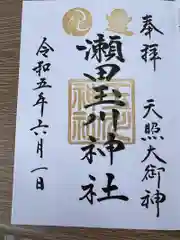 奉拝
天照大御神
瀬田玉川神社
令和五年六月一日